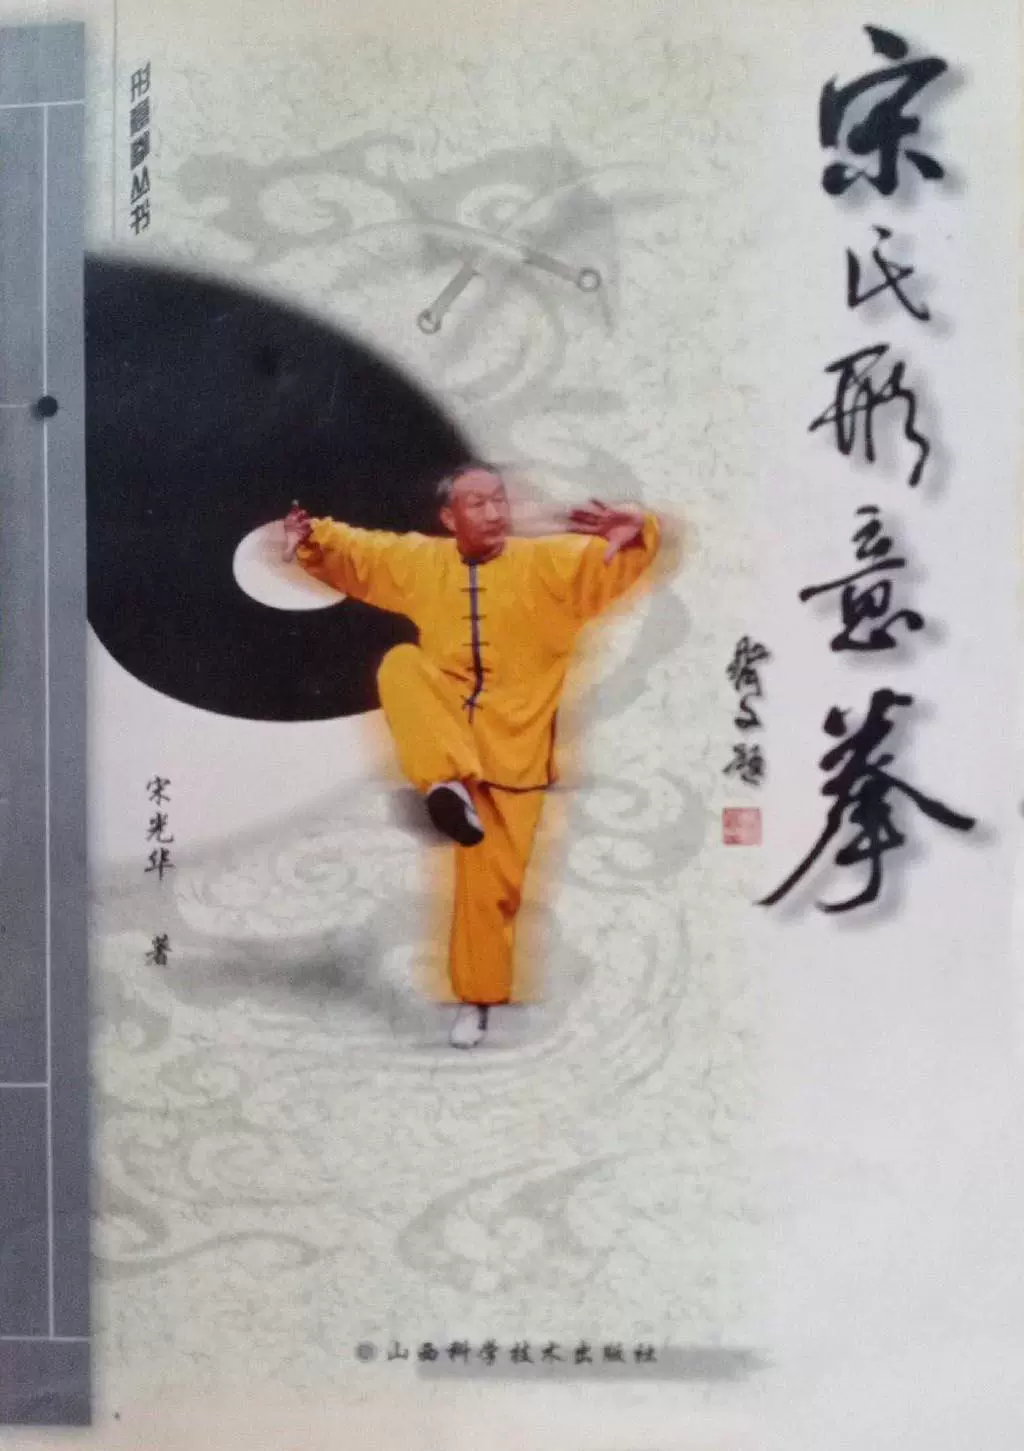 宋氏形意拳
形意拳丛书
宋光华 著
山西科学技术出版社